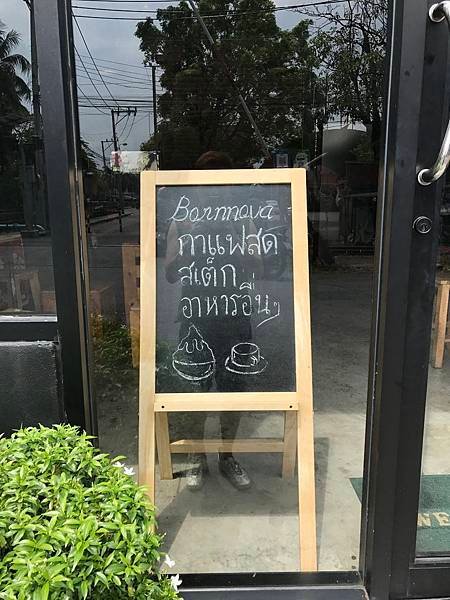 Bornnova
กาแฟสด
สเต็ก
อาหารอื่นๆ